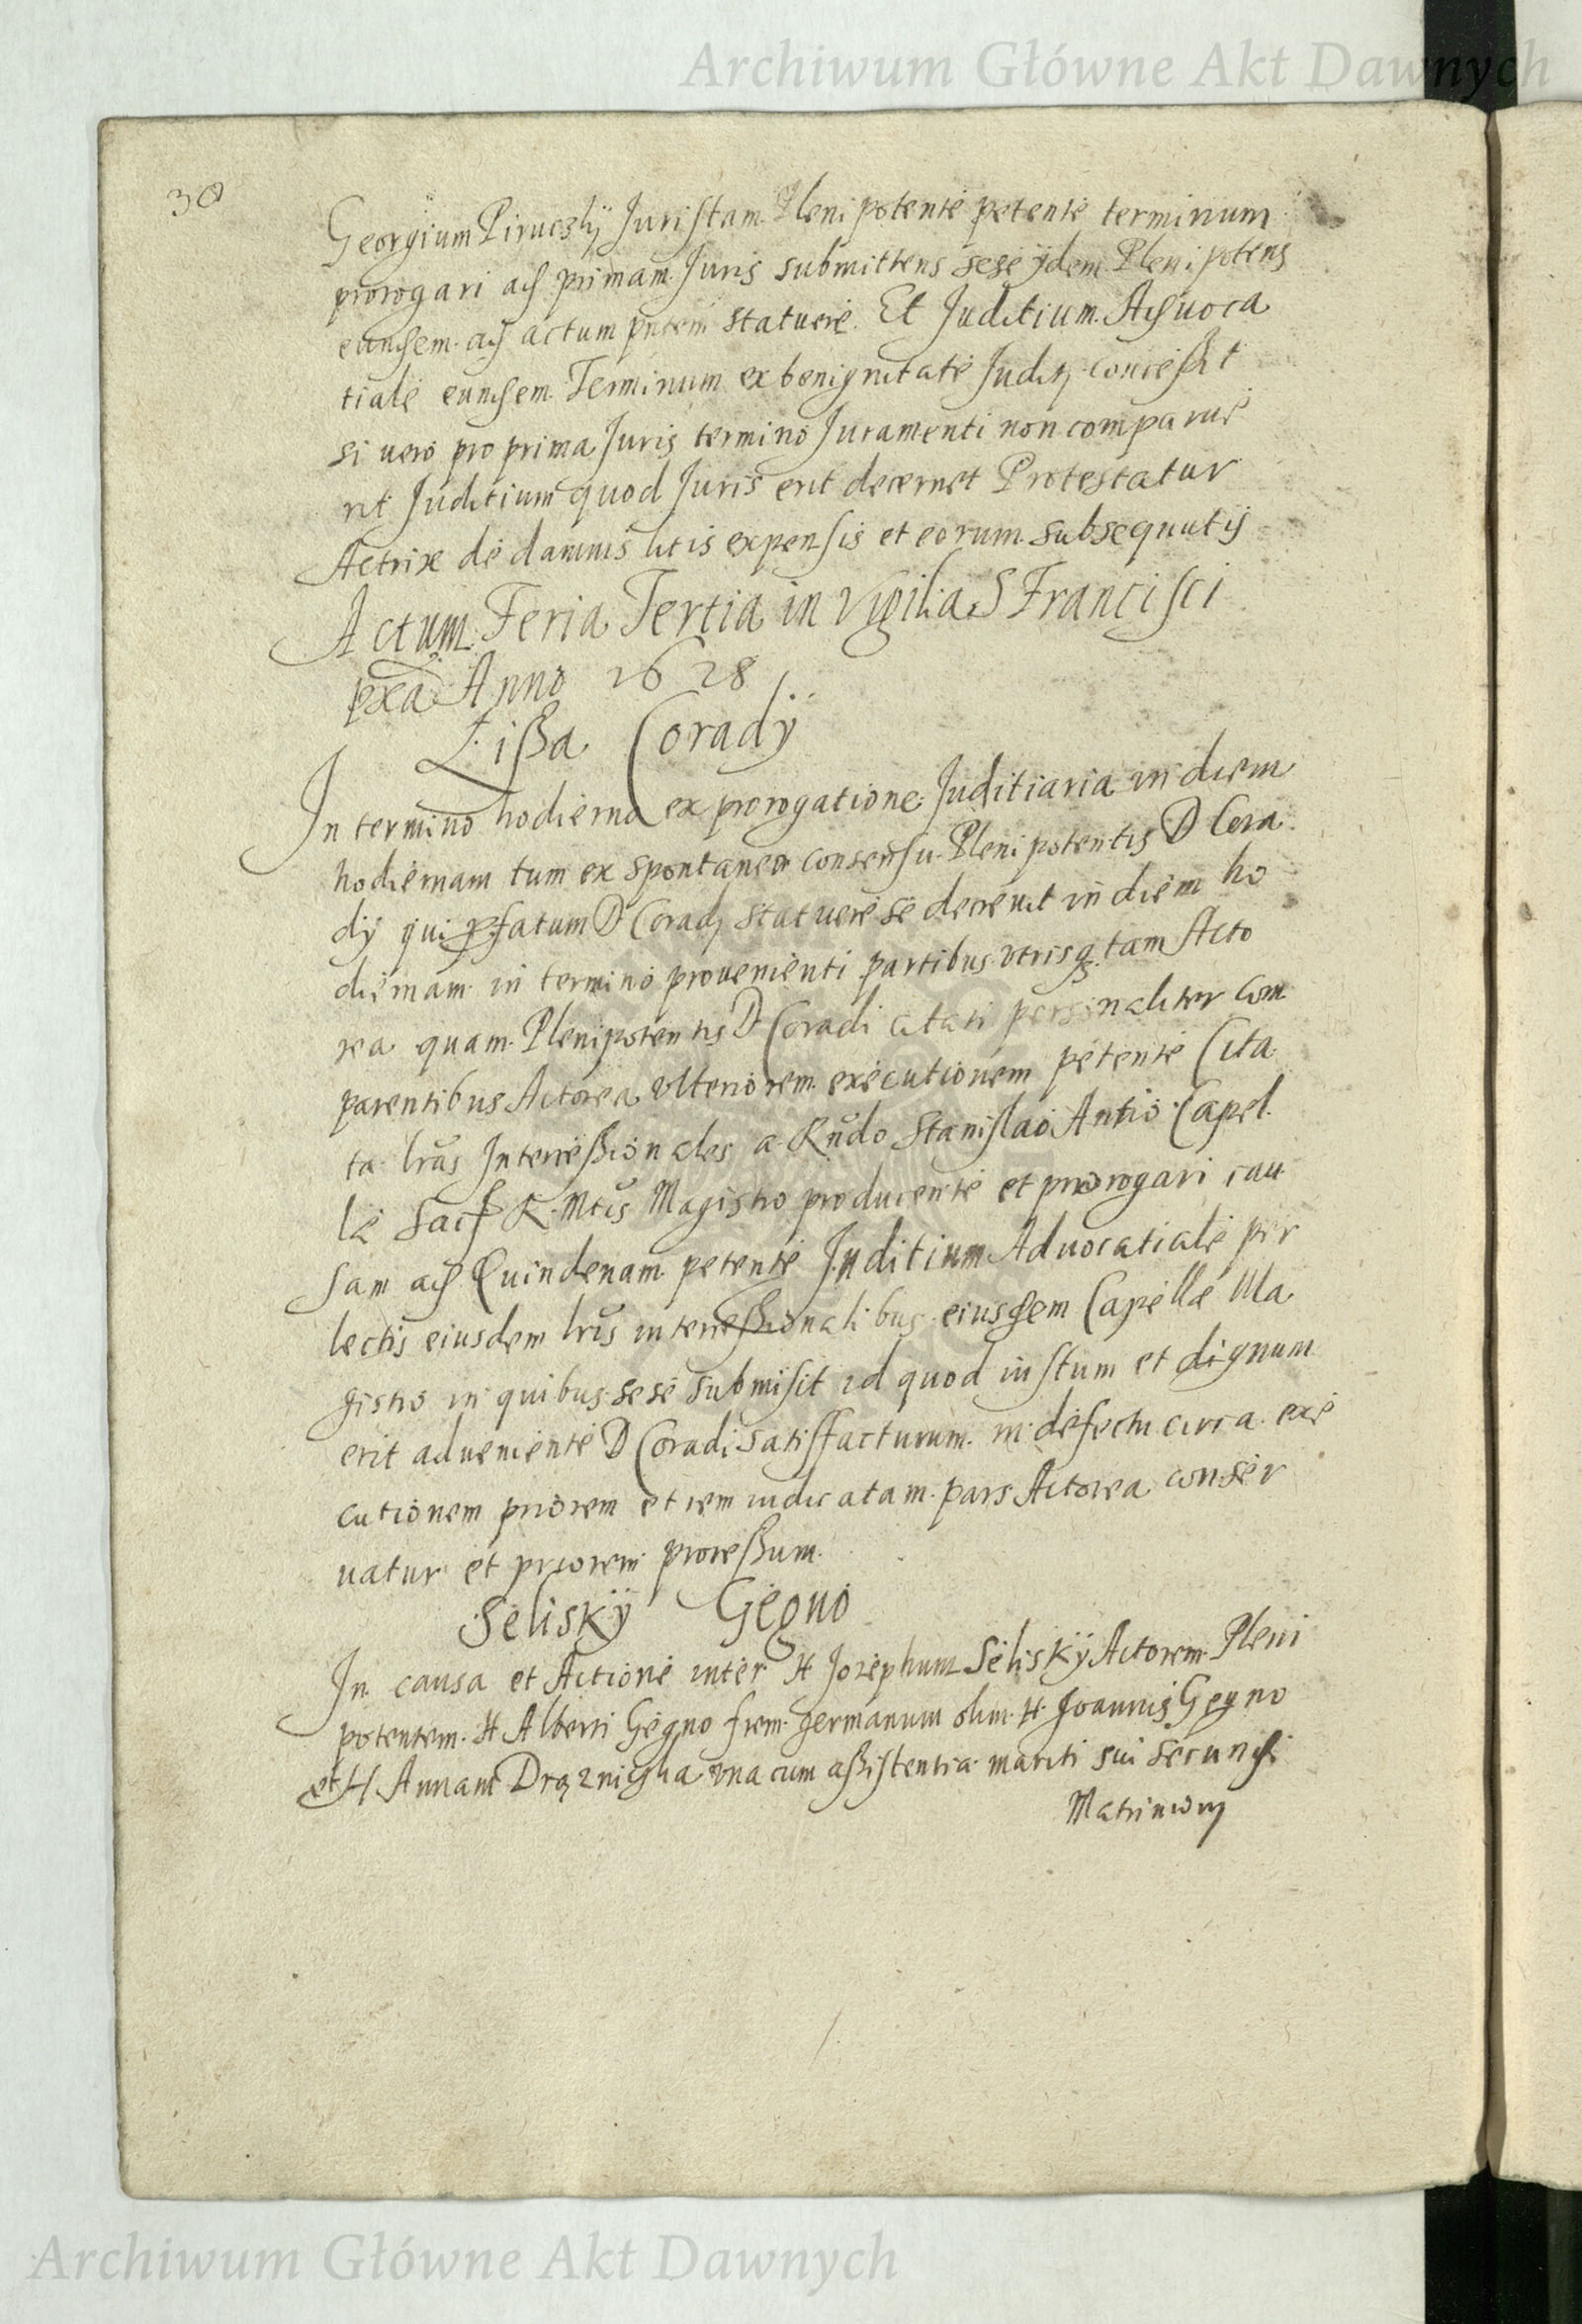 Archiwum Główne Akt Dawnych
30
Georgium Pirucsky Juristam Plenipotente petente terminum
prorogari ad primam Juris submittens sese ydem Plenipotens
eundem ad actum pntem statuere. Et Juditium Advoca
tiale eundem Terminum ex benignitate Judity concessit
si vero pro prima Juris termino Juramenti non comparue
rit Juditium quod Juris erit decernet Protestatur
Actrix de damnis litis expensis et eorum subsequutis
Actum Feria Tertia in Vigilia S Francisci
pxa Anno 1628
Lißa Corady
In termino hodierna ex prorogatione Juditiaria in diem
hodiernam tum ex spontaneo consensu Plenipotentis D Cora
dy qui pfatum D Corady statuere se decrevit in diem ho
diernam in termino provenienti partibus utrisq tam Acto
rea quam Plenipotentis D Coradi citati personaliter com
parentibus Actorea ulteriorem executionem petente Cita
ta lras Interceßionales a Rndo Stanislao Antio Capel
le Sacr R. Mtis Magistro producente et prorogari cau
sam ad Quindenam petente Juditium Advocatiale per
lectis eiusdem lris interceßionalibus eiusdem Capellæ Ma
gistro in quibus sese submisit id quod iustum et dignum
erit adveniente D Coradi satisfacturum in defectu circa exe
cutionem priorem et rem iudicatam pars Actorea conser
uatur et priorem proceßum.
Selisky Gegno
In causa et Actione inter H Josephum Selisky Actorem Pleni
potentem H Alberti Gegno frem germanum olim H Joannis Gegno
et H Annam una cum aßistentia mariti sui secundi
Matrimony
Archiwum Główne Akt Dawnych